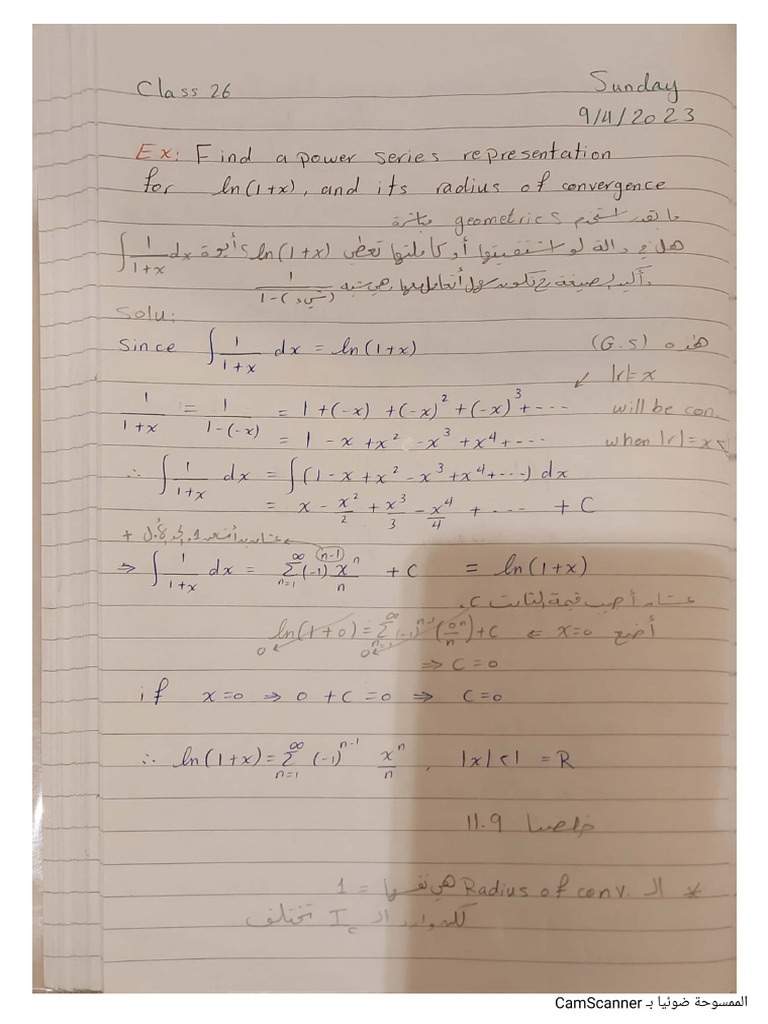 Class 26
Sunday
9/4/2023
Ex: Find a power series representation
for ln(1+x), and its radius of convergence
ما بقدر استخدم geometrics مباشرة
هل في دالة لو اشتقيتها أو كاملتها تعطي ln(1+x)؟ أيوة ∫ 1/(1+x) dx
أكيد الصيغة رح تكون سهل أتعامل معها، هي شبه 1/(1-(شيء))
Solu:
Since ∫ 1/(1+x) dx = ln(1+x)
هذه (G.S)
|r|=x
1/(1+x) = 1/(1-(-x)) = 1+(-x)+(-x)²+(-x)³+...
will be con.
= 1 - x + x² - x³ + x⁴ + ...
when |r|=x<
∴ ∫ 1/(1+x) dx = ∫(1 - x + x² - x³ + x⁴ + ...) dx
= x - x²/2 + x³/3 - x⁴/4 + ... + C
الأول +
⇒ ∫ 1/(1+x) dx = Σ_{n=1}^{∞} (-1)^{n-1} x^n/n + C = ln(1+x)
عشان أجيب قيمة الثابت C.
أضع x=0 ⇐ ln(1+0) = Σ_{n=1}^{∞} (-1)^{n-1} (0^n/n) + C
0 0
⇒ C=0
if x=0 ⇒ 0 + C = 0 ⇒ C=0
∴ ln(1+x) = Σ_{n=1}^{∞} (-1)^{n-1} x^n/n , |x|<1 = R
خلصنا 11.9
* الـ Radius of conv. هي نفسها = 1
الـ I_c تختلف
الممسوحة ضوئيا بـ CamScanner